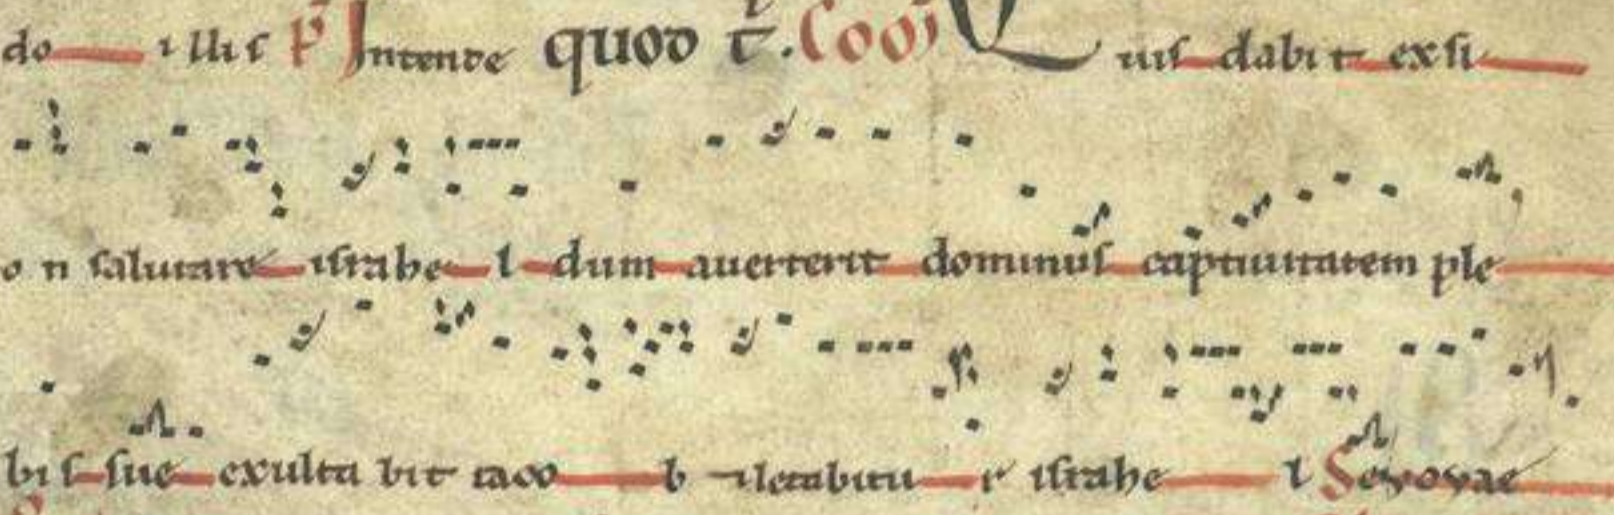 do illis Intende quod t̄. Coō Quis dabit ex si
o n salutare israhe l dum auerterit dominus captiuitatem ple
bi s sue exulta bit iaco b & letabitu r israhe l Seuouae